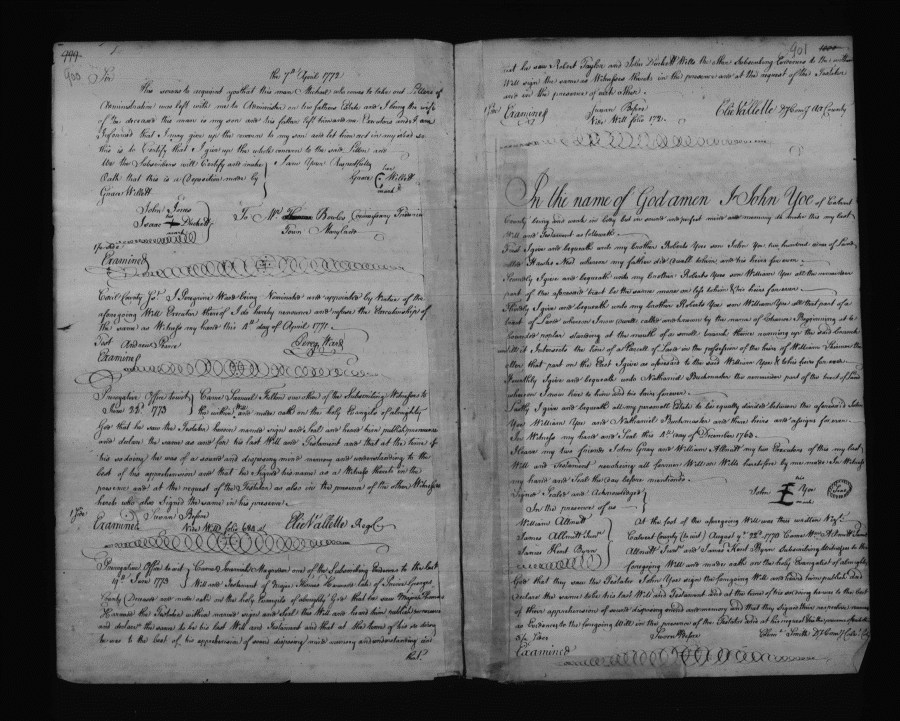 499
900
Sir
the 7th April 1772
This serves to acquaint you that this man Michael who wants to take out Letters of
Administration was left with me to Administer on his fathers Estate and I being the wife
of the deceased this man is my son and his father left him and me Executors and I am
Informed that I may give up the concern to my son and let him act in my stead so
this is to Certify that I give up the whole concern to the said
the Subscribers will Certify and make
Oath that this is a Deposition made by
Grace Willett
I am Your Respectfully
her
Grace C Willett
mark
John Jones
his
Isaac Duckett
mark
To Mr Bowles Commissary
Town Maryland
Examined
Cecil County Jst I Peregrine Ward being Nominated and appointed by Virtue of the
aforegoing Will Executor thereof I do hereby renounce and refuse the Executorship of
the same as Witness my hand this day of April 1771
Test Andrew Pearce
Pereg Ward
Examined
Prerogative Office towit
June 22d 1773
Came Samuel one of the Subscribing Witnesses to
the within Will and made oath on the holy Evangels of almighty
God that he saw the Testator herein named sign and Seal and heard him publish pronounce
and declare the same as and for his last Will and Testament and that at the time of
his so doing he was of a sound and disposing mind memory and understanding to the
best of his apprehension and that he signed his name as a Witness thereto in the
presence and at the request of the Testator as also in the presence of the other Witnesses
hereto who also Signed the same in his presence
Sworn Before
Examined
Vide Will folio
Elie Vallette Regr
Prerogative Office to wit
19th June 1773
Came Magruder one of the Subscribing Evidences to the last
Will and Testament of Thomas Harwood late of Prince Georges
County Deceased and made oath on the holy Evangels of almighty God that he saw Thomas
Harwood the Testator within named sign and Seal this Will and heard him publish pronounce
and declare the same to be his last Will and Testament and that at the time of his so doing
he was to the best of his apprehension of sound disposing mind memory and understanding and
that
901
that he saw Robert Taylor and John Duckett Wills the other Subscribing Evidences to the within
Will sign the same as Witnesses thereto in the presence and at the request of the Testator
and in the presence of each other
Examined
Sworn Before
Vide Will folio 1771
Elie Vallette Dy Comry Aa County
In the name of God amen I John Yoe of Calvert
County being sick and weak in body but in sound and perfect mind and memory do make this my last
Will and Testament as followeth
First I give and bequeath unto my brother Roberts Yoes son John Yoe two hundred acres of Land
Called Hawks Nest whereon my father did dwell to him and his heirs for ever
Secondly I give and bequeath unto my brother Roberts Yoes son William Yoe all the remainder
part of the aforesaid tract be the same more or less to him & his heirs for ever
Thirdly I give and bequeath unto my brother Roberts Yoes son William Yoe all that part of a
tract of Land whereon I now dwell called and known by the name of Beginning at a
bounded poplar standing at the mouth of a small branch thence running up the said branch
untill it Intersects the line of a Parcell of Land in the possession of the heirs of William
Also that part on the East I give as aforesaid to the said William Yoe & to his heirs for ever
Fourthly I give and bequeath unto Nathaniel the remainder part of the tract of Land
whereon I now live to him and his heirs for ever
Lastly I give and bequeath all my personal Estate to be equally divided between the aforesaid John
Yoe William Yoe and Nathaniel and their heirs and assigns for ever
In Witness my hand and Seal this day of December 1763
I leave my two friends John Gray and William Allnutt my two Executors of this my last
Will and Testament revoking all former Will or Wills heretofore by me made In Witness
my hand and Seal the day before mentioned
Signed Sealed and Acknowledged
In the presence of us
his
John Yoe
mark
William Allnutt
James Allnutt Junr
James Kent Byrn
At the foot of the aforegoing Will was thus written Viz
Calvert County (to wit) August ye 22d 1773 Came Wm Allnutt James
Allnutt Junr and James Kent Byrn Subscribing Witnesses to the
foregoing Will and made oath on the holy Evangelist of almighty
God that they saw the Testator John Yoe sign the foregoing Will and heard him publish and
declare the same to be his last Will and Testament and at the time of his so doing he was to the best
of their apprehension of sound disposing mind and memory and that they signed their respective names
as Evidences to the foregoing Will in the presence of the Testator and at his request
Sworn Before
Smith Dy Comry
Examined